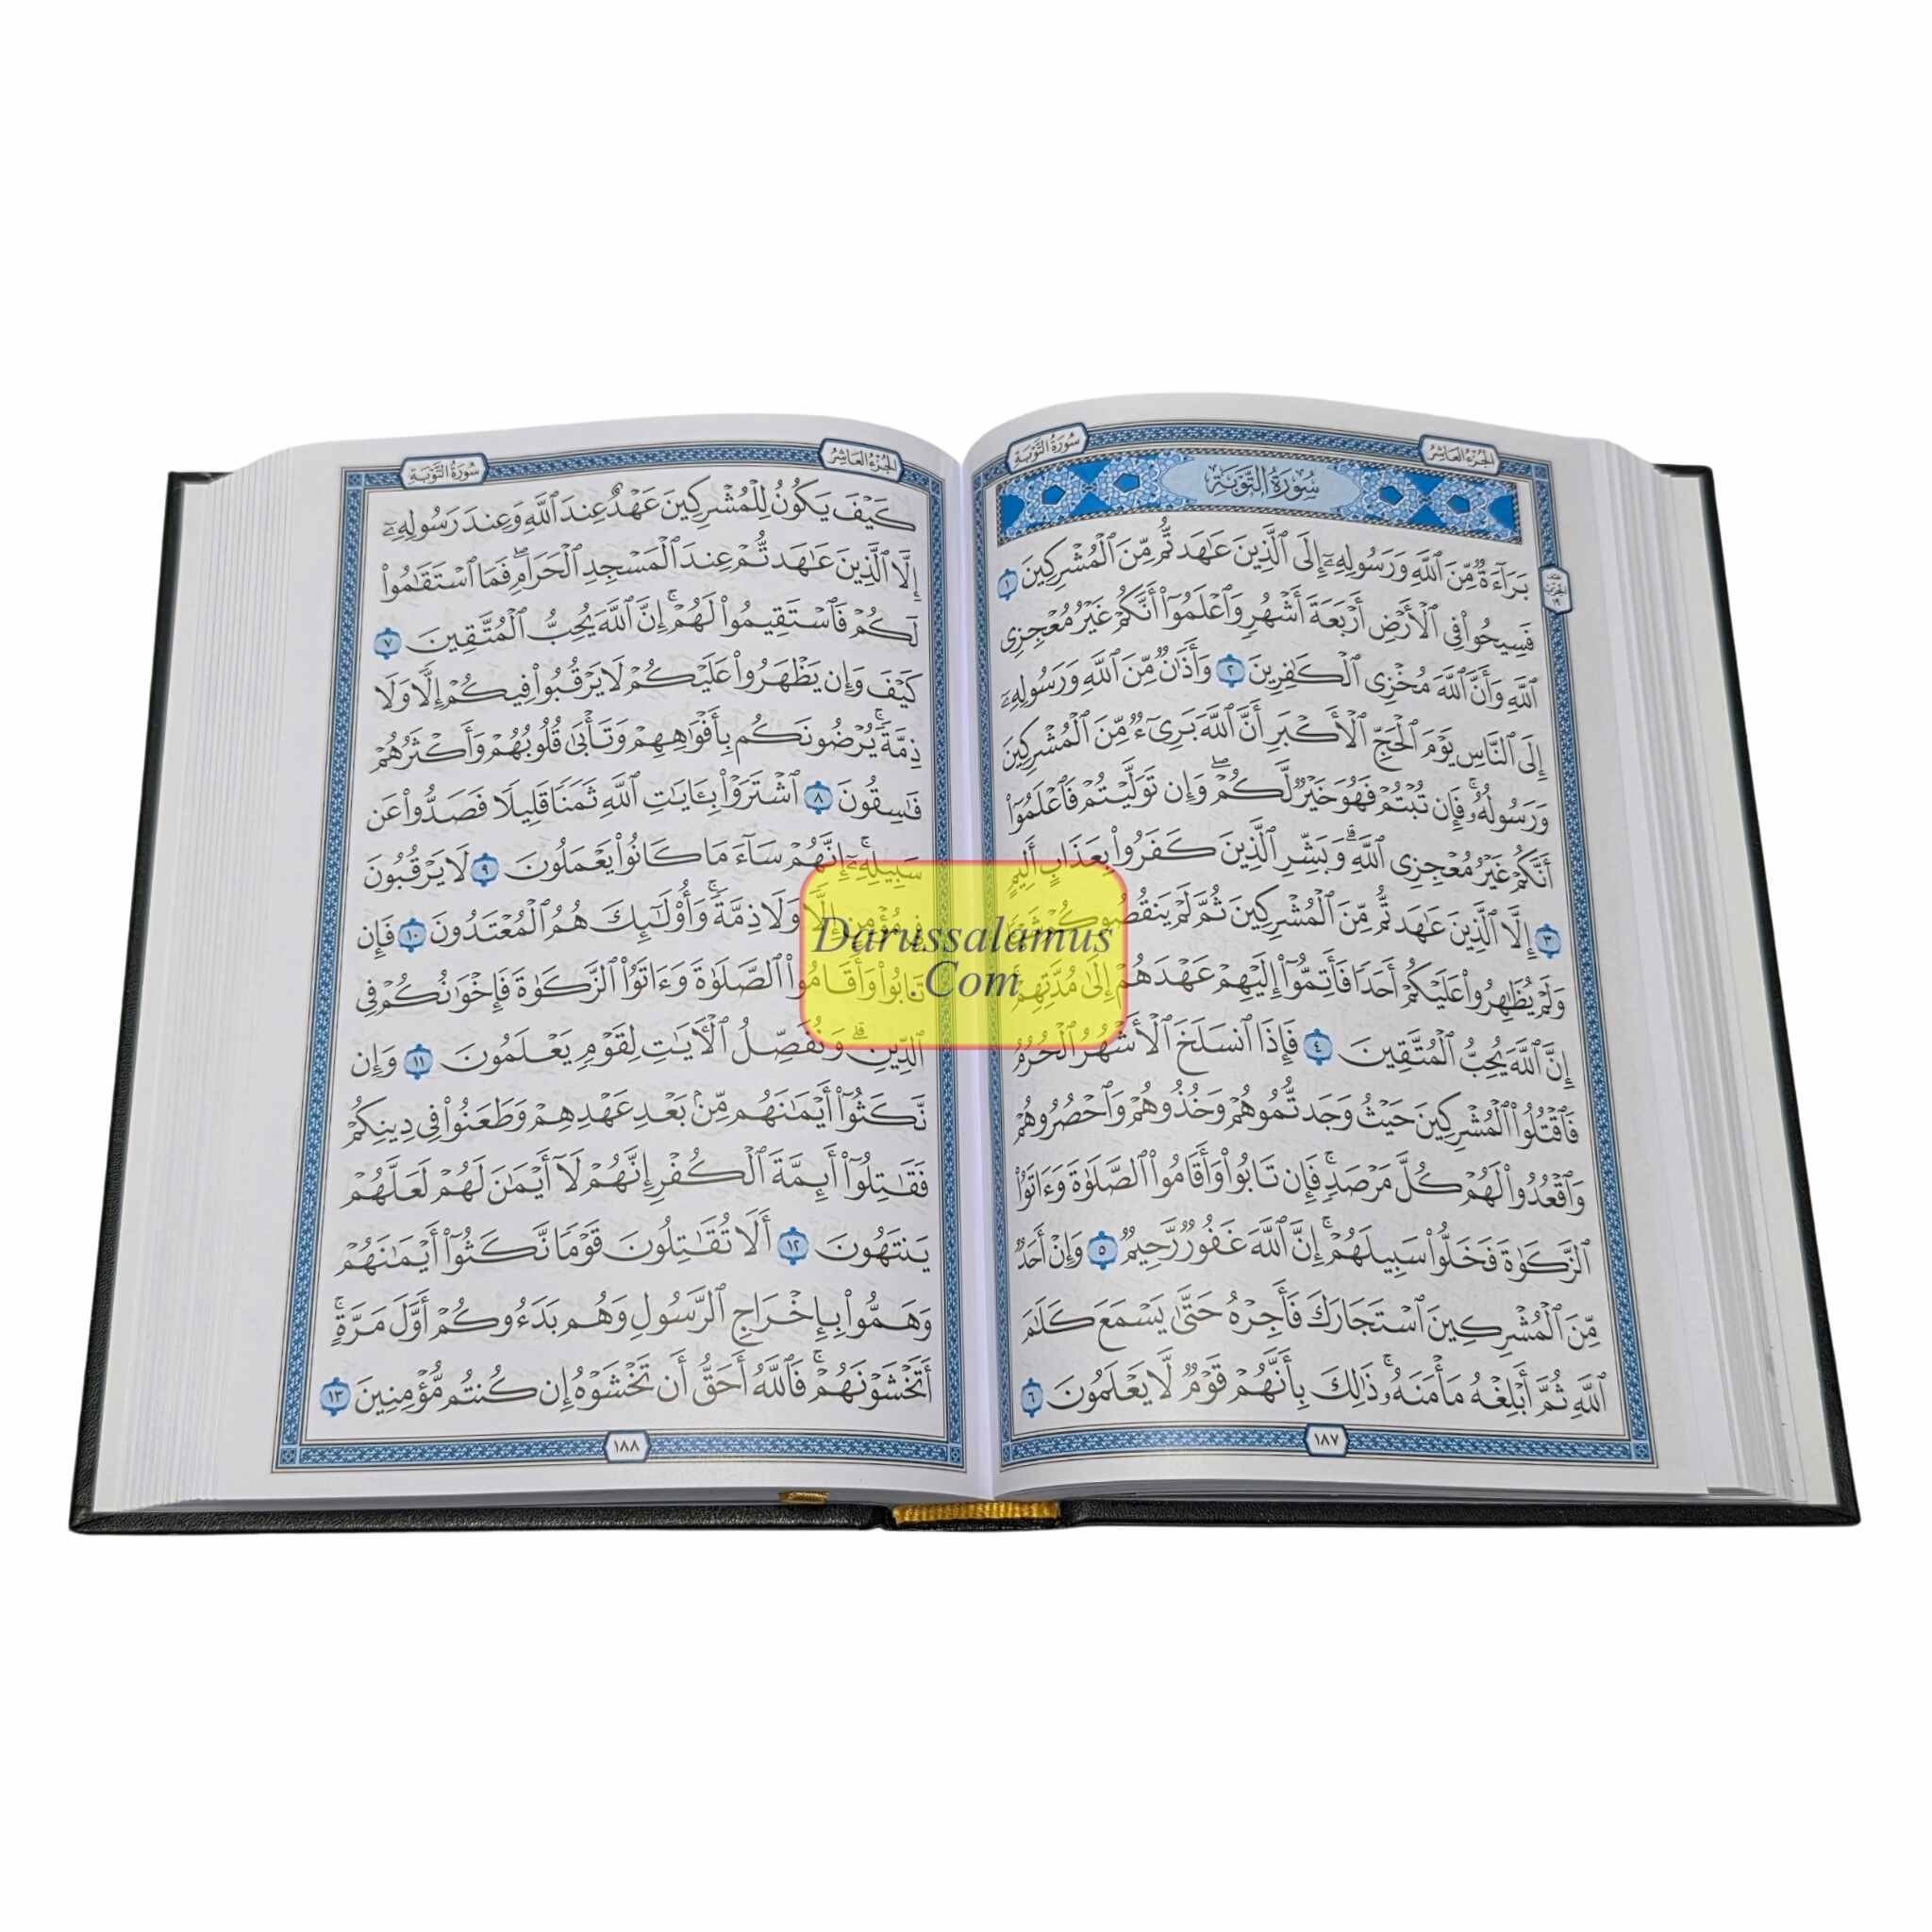 سُورَةُ التَّوۡبَةِ
الجُزۡءُ العَاشِرُ
سُورَةُ التَّوۡبَةِ
بَرَآءَةٞ مِّنَ ٱللَّهِ وَرَسُولِهِۦٓ إِلَى ٱلَّذِينَ عَٰهَدتُّم مِّنَ ٱلۡمُشۡرِكِينَ ١
فَسِيحُواْ فِي ٱلۡأَرۡضِ أَرۡبَعَةَ أَشۡهُرٖ وَٱعۡلَمُوٓاْ أَنَّكُمۡ غَيۡرُ مُعۡجِزِي
ٱللَّهِ وَأَنَّ ٱللَّهَ مُخۡزِي ٱلۡكَٰفِرِينَ ٢ وَأَذَٰنٞ مِّنَ ٱللَّهِ وَرَسُولِهِۦٓ
إِلَى ٱلنَّاسِ يَوۡمَ ٱلۡحَجِّ ٱلۡأَكۡبَرِ أَنَّ ٱللَّهَ بَرِيٓءٞ مِّنَ ٱلۡمُشۡرِكِينَ
وَرَسُولُهُۥۚ فَإِن تُبۡتُمۡ فَهُوَ خَيۡرٞ لَّكُمۡۖ وَإِن تَوَلَّيۡتُمۡ فَٱعۡلَمُوٓاْ
أَنَّكُمۡ غَيۡرُ مُعۡجِزِي ٱللَّهِۗ وَبَشِّرِ ٱلَّذِينَ كَفَرُواْ بِعَذَابٍ أَلِيمٍ
٣ إِلَّا ٱلَّذِينَ عَٰهَدتُّم مِّنَ ٱلۡمُشۡرِكِينَ ثُمَّ لَمۡ يَنقُصُوكُمۡ شَيۡـٔٗا
وَلَمۡ يُظَٰهِرُواْ عَلَيۡكُمۡ أَحَدٗا فَأَتِمُّوٓاْ إِلَيۡهِمۡ عَهۡدَهُمۡ إِلَىٰ مُدَّتِهِمۡۚ
إِنَّ ٱللَّهَ يُحِبُّ ٱلۡمُتَّقِينَ ٤ فَإِذَا ٱنسَلَخَ ٱلۡأَشۡهُرُ ٱلۡحُرُمُ
فَٱقۡتُلُواْ ٱلۡمُشۡرِكِينَ حَيۡثُ وَجَدتُّمُوهُمۡ وَخُذُوهُمۡ وَٱحۡصُرُوهُمۡ
وَٱقۡعُدُواْ لَهُمۡ كُلَّ مَرۡصَدٖۚ فَإِن تَابُواْ وَأَقَامُواْ ٱلصَّلَوٰةَ وَءَاتَوُاْ
ٱلزَّكَوٰةَ فَخَلُّواْ سَبِيلَهُمۡۚ إِنَّ ٱللَّهَ غَفُورٞ رَّحِيمٞ ٥ وَإِنۡ أَحَدٞ
مِّنَ ٱلۡمُشۡرِكِينَ ٱسۡتَجَارَكَ فَأَجِرۡهُ حَتَّىٰ يَسۡمَعَ كَلَٰمَ
ٱللَّهِ ثُمَّ أَبۡلِغۡهُ مَأۡمَنَهُۥۚ ذَٰلِكَ بِأَنَّهُمۡ قَوۡمٞ لَّا يَعۡلَمُونَ ٦
١٨٧
الجُزۡءُ العَاشِرُ
سُورَةُ التَّوۡبَةِ
كَيۡفَ يَكُونُ لِلۡمُشۡرِكِينَ عَهۡدٌ عِندَ ٱللَّهِ وَعِندَ رَسُولِهِۦٓ
إِلَّا ٱلَّذِينَ عَٰهَدتُّمۡ عِندَ ٱلۡمَسۡجِدِ ٱلۡحَرَامِۖ فَمَا ٱسۡتَقَٰمُواْ
لَكُمۡ فَٱسۡتَقِيمُواْ لَهُمۡۚ إِنَّ ٱللَّهَ يُحِبُّ ٱلۡمُتَّقِينَ ٧
كَيۡفَ وَإِن يَظۡهَرُواْ عَلَيۡكُمۡ لَا يَرۡقُبُواْ فِيكُمۡ إِلّٗا وَلَا
ذِمَّةٗۚ يُرۡضُونَكُم بِأَفۡوَٰهِهِمۡ وَتَأۡبَىٰ قُلُوبُهُمۡ وَأَكۡثَرُهُمۡ
فَٰسِقُونَ ٨ ٱشۡتَرَوۡاْ بِـَٔايَٰتِ ٱللَّهِ ثَمَنٗا قَلِيلٗا فَصَدُّواْ عَن
سَبِيلِهِۦٓۚ إِنَّهُمۡ سَآءَ مَا كَانُواْ يَعۡمَلُونَ ٩ لَا يَرۡقُبُونَ
فِي مُؤۡمِنٍ إِلّٗا وَلَا ذِمَّةٗۚ وَأُوْلَٰٓئِكَ هُمُ ٱلۡمُعۡتَدُونَ ١٠ فَإِن
تَابُواْ وَأَقَامُواْ ٱلصَّلَوٰةَ وَءَاتَوُاْ ٱلزَّكَوٰةَ فَإِخۡوَٰنُكُمۡ فِي
ٱلدِّينِۗ وَنُفَصِّلُ ٱلۡأٓيَٰتِ لِقَوۡمٖ يَعۡلَمُونَ ١١ وَإِن
نَّكَثُوٓاْ أَيۡمَٰنَهُم مِّنۢ بَعۡدِ عَهۡدِهِمۡ وَطَعَنُواْ فِي دِينِكُمۡ
فَقَٰتِلُوٓاْ أَئِمَّةَ ٱلۡكُفۡرِ إِنَّهُمۡ لَآ أَيۡمَٰنَ لَهُمۡ لَعَلَّهُمۡ
يَنتَهُونَ ١٢ أَلَا تُقَٰتِلُونَ قَوۡمٗا نَّكَثُوٓاْ أَيۡمَٰنَهُمۡ
وَهَمُّواْ بِإِخۡرَاجِ ٱلرَّسُولِ وَهُم بَدَءُوكُمۡ أَوَّلَ مَرَّةٍۚ
أَتَخۡشَوۡنَهُمۡۚ فَٱللَّهُ أَحَقُّ أَن تَخۡشَوۡهُ إِن كُنتُم مُّؤۡمِنِينَ ١٣
١٨٨
Darussalamus
.Com